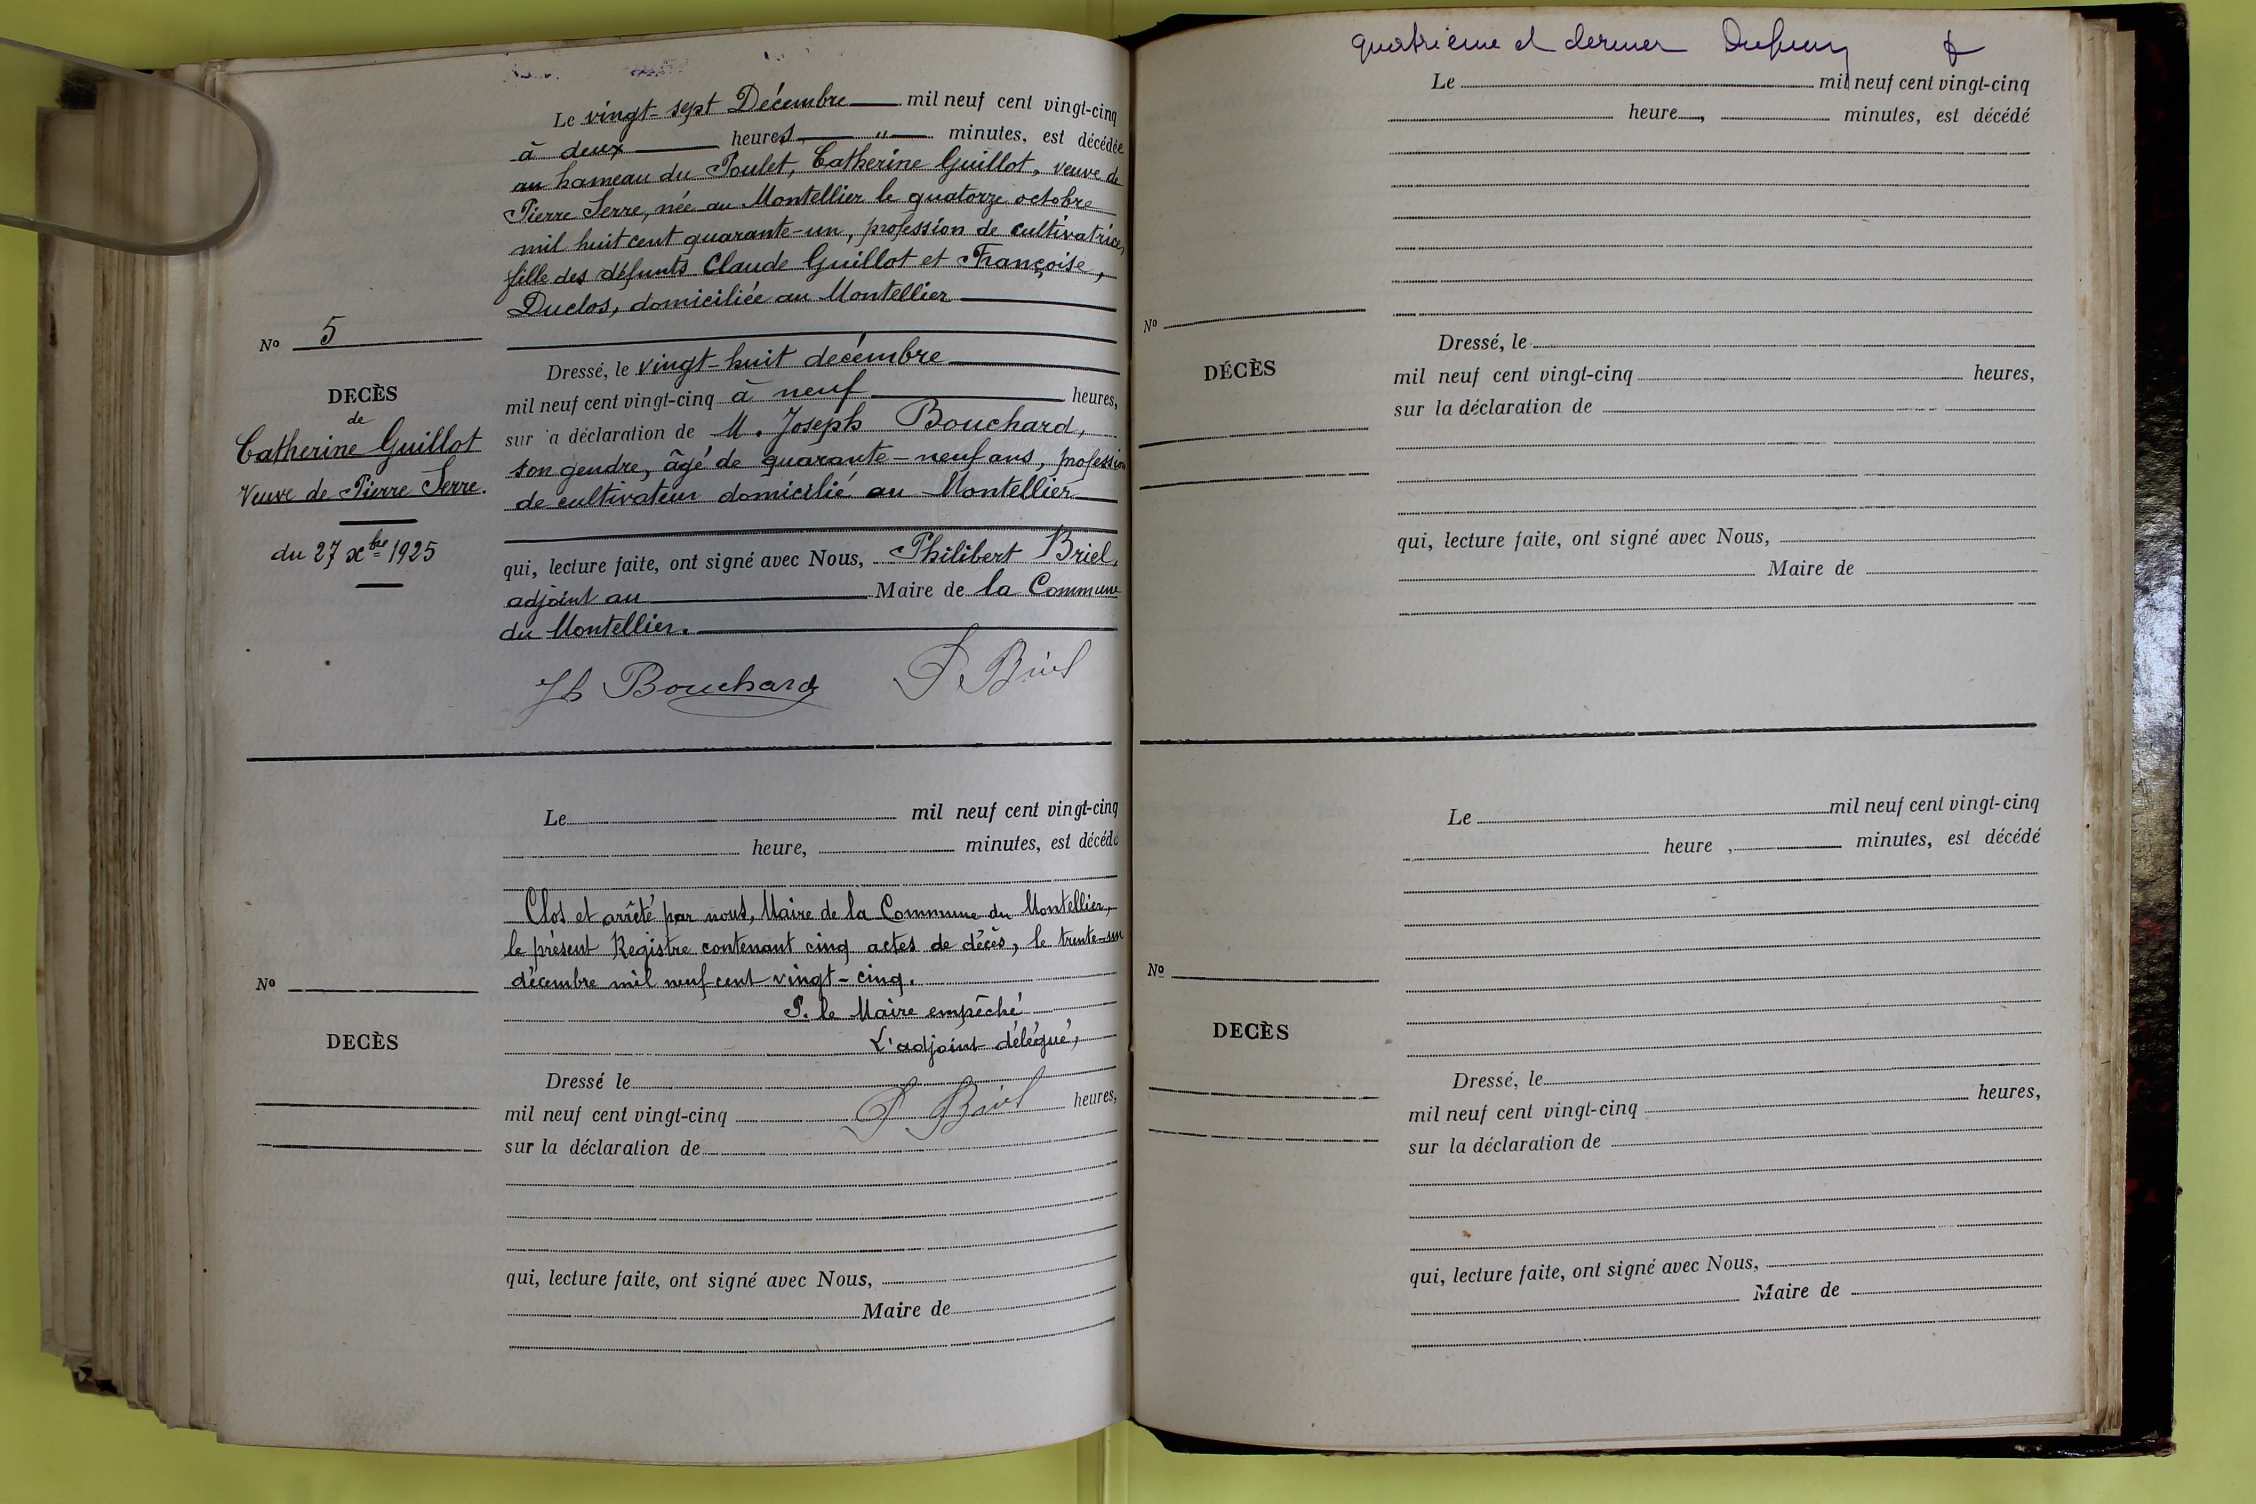 Le vingt-sept Décembre mil neuf cent vingt-cinq
à deux heures " minutes, est décédée
au hameau du Poulet, Catherine Guillot, veuve de
Pierre Serre, née au Montellier le quatorze octobre
mil huit cent quarante-un, profession de cultivatrice,
fille des défunts Claude Guillot et Françoise,
Duclos, domiciliée au Montellier
No 5
DECÈS
de
Catherine Guillot
Veuve de Pierre Serre.
du 27 xbre 1925
Dressé, le vingt-huit decémbre
mil neuf cent vingt-cinq à neuf heures,
sur a déclaration de M. Joseph Bouchard,
son gendre, âgé de quarante-neuf ans, profession
de cultivateur domicilié au Montellier
qui, lecture faite, ont signé avec Nous, Philibert Briel,
adjoint au Maire de la Commune
du Montellier.
Jh Bouchard P. Briel
Le mil neuf cent vingt-cinq
heure, minutes, est décédé
Clos et arrêté par nous, Maire de la Commune du Montellier,
le présent Registre contenant cinq actes de décès, le trente-un
décembre mil neuf cent vingt-cinq.
P. le Maire empêché
L'adjoint délégué,
No
DECÈS
Dressé le
mil neuf cent vingt-cinq P. Briel heures,
sur la déclaration de
qui, lecture faite, ont signé avec Nous,
Maire de
quatrième et dernier
Le mil neuf cent vingt-cinq
heure, minutes, est décédé
No
DÉCÈS
Dressé, le
mil neuf cent vingt-cinq heures,
sur la déclaration de
qui, lecture faite, ont signé avec Nous,
Maire de
Le mil neuf cent vingt-cinq
heure , minutes, est décédé
No
DECÈS
Dressé, le
mil neuf cent vingt-cinq heures,
sur la déclaration de
qui, lecture faite, ont signé avec Nous,
Maire de